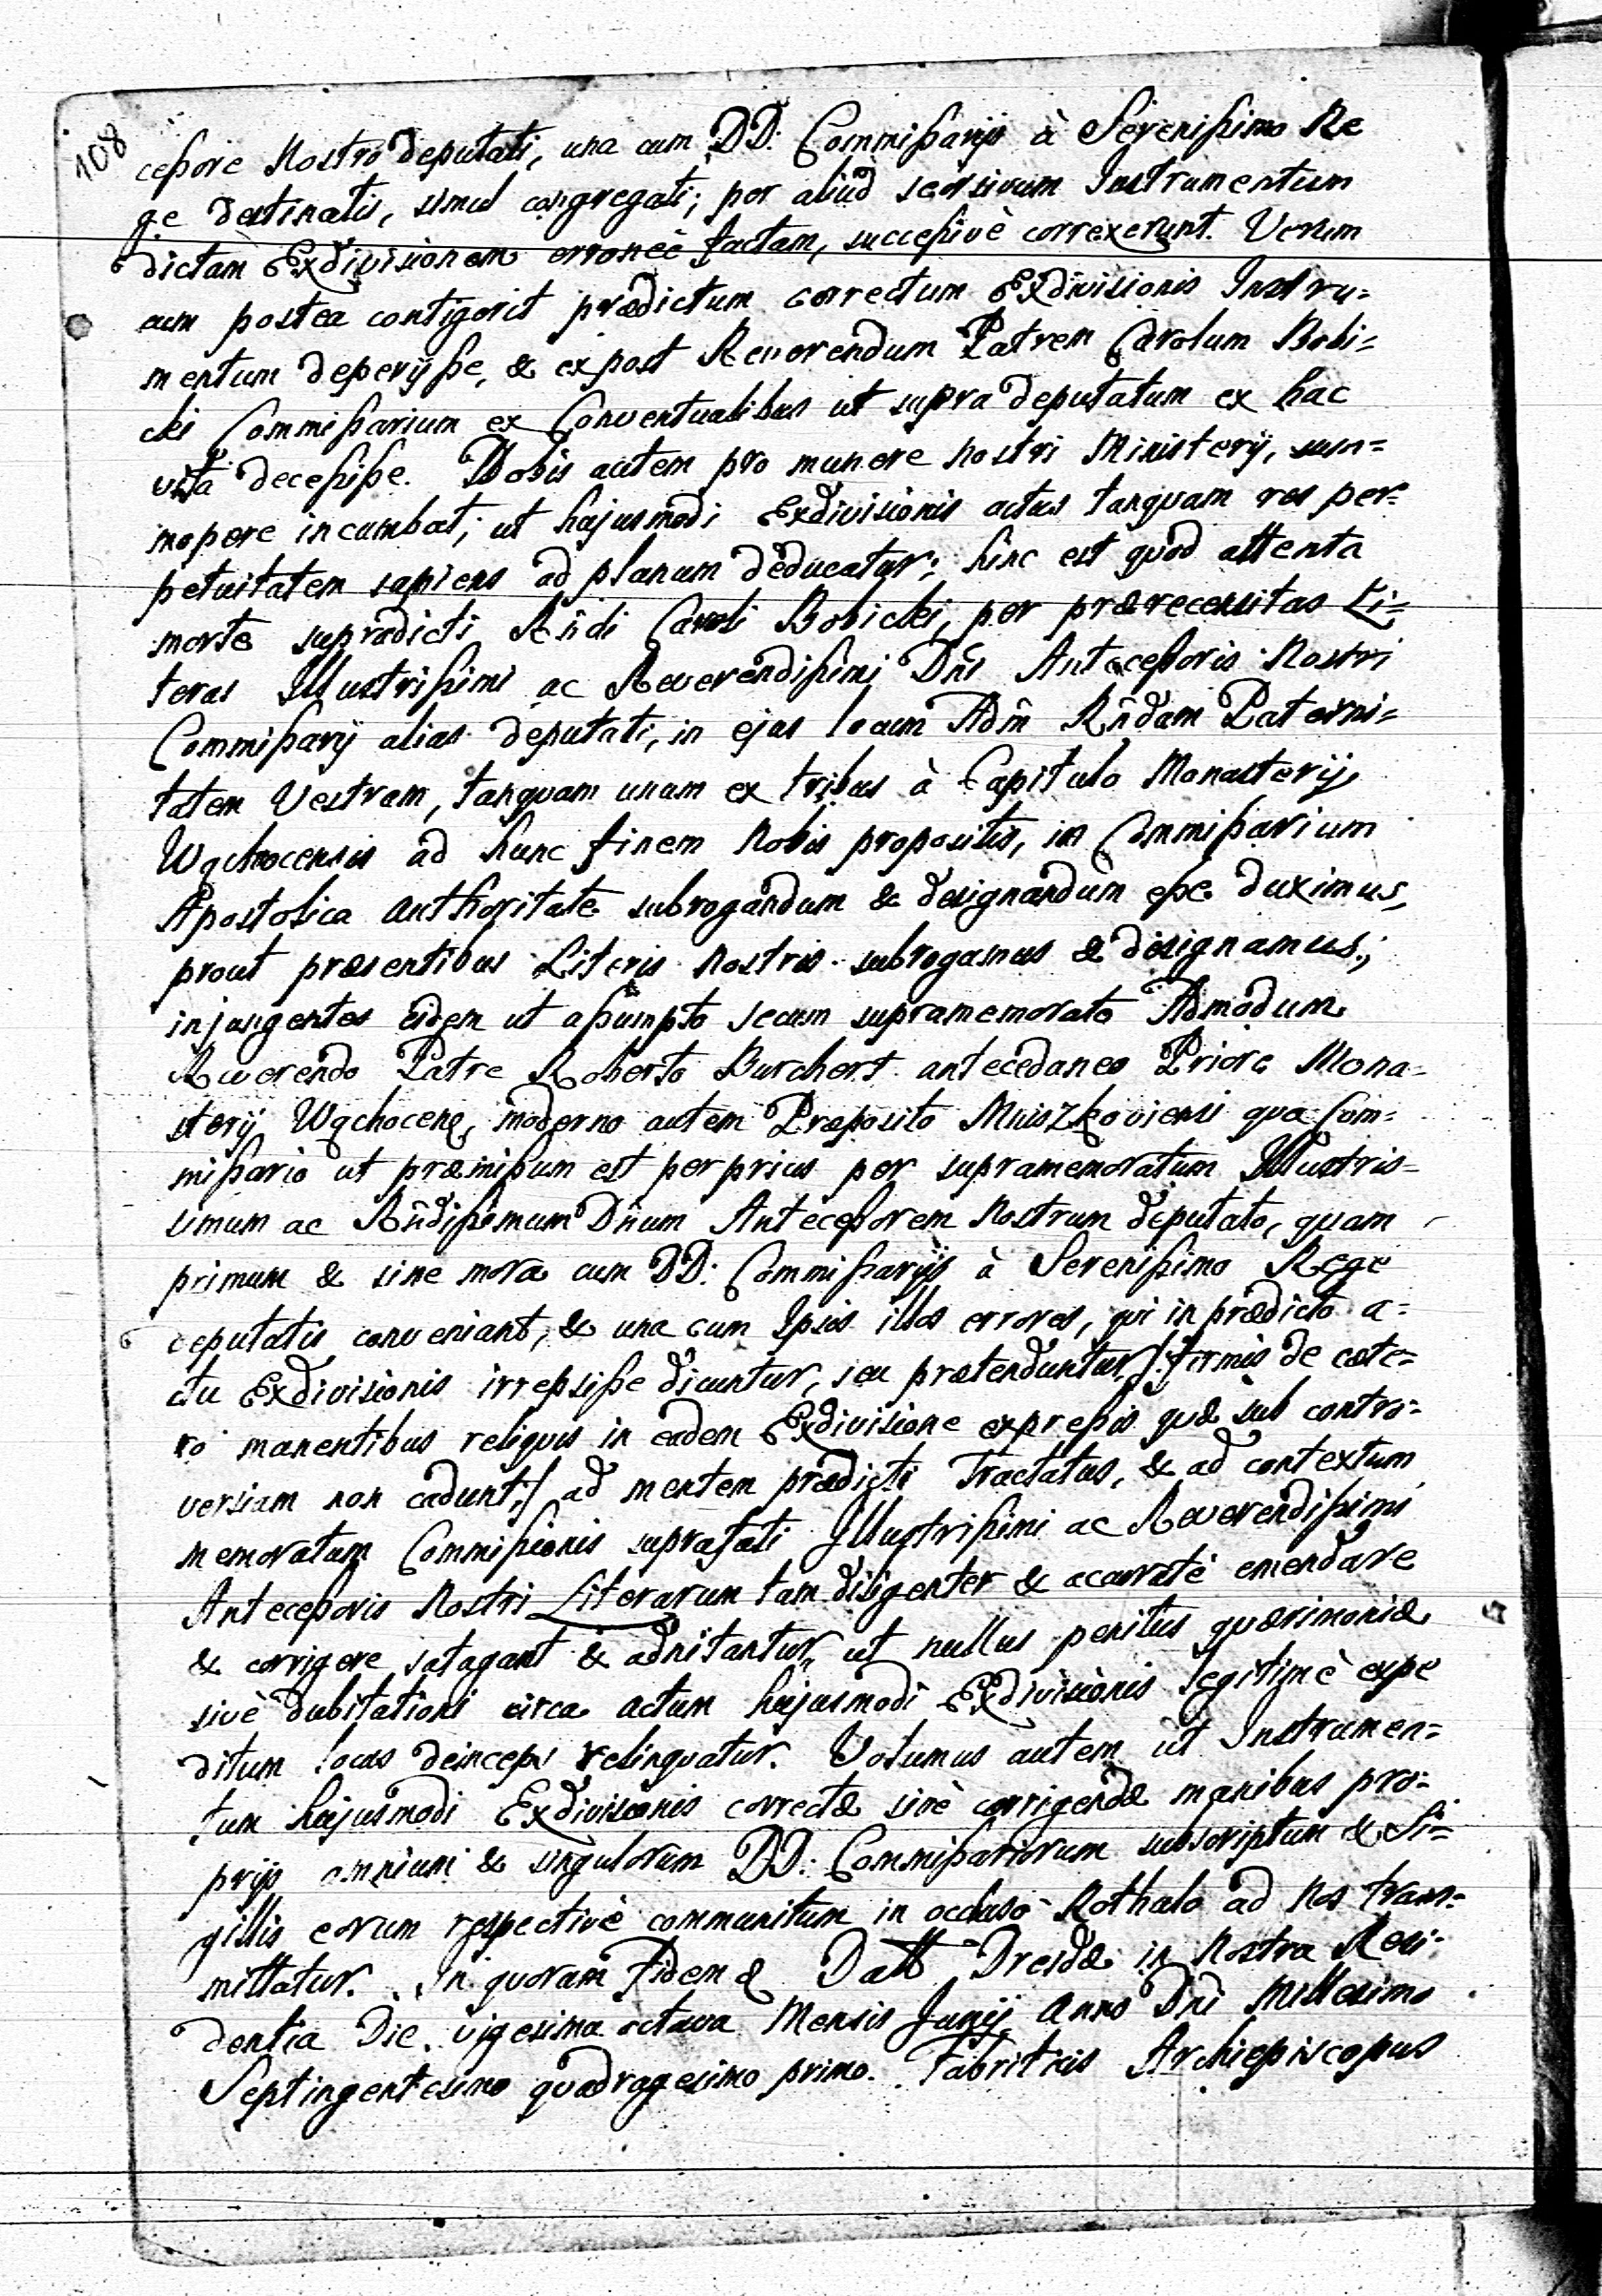 108
cessore Nostro deputati, una cum DD: Commissarijs à Serenissimo Re
ge destinatis, simul congregati; per aliud seorsivum Instrumentum
dictam Exdivisionem erroneè factam, successivè correxerunt. Verum
cum postea contigerit prædictum correctum Exdivisionis Instru=
mentum deperijsse, & ex post Reverendum Patrem Carolum Bobi=
cki Commissarium ex Conventualibus ut supra deputatum ex hac
vita decessisse. Nobis autem pro munere nostri Ministerij, sum=
mopere incumbat; ut hujusmodi Exdivisionis actus tanquam res per=
petuitatem sapiens ad planum deducatur; hinc est quod attenta
morte supradicti Rñdi Caroli Bobicki, per prærecensitas Li=
teras Illustrissimi ac Reverendissimi Dñi Antecessoris Nostri
Commissarij alias deputati, in ejus locum Adm̃ Rñdam Paterni=
tatem Vestram, tanquam unam ex tribus à Capitulo Monasterij
Wąchocensis ad hunc finem Nobis propositis, in Commissarium
Apostolica authoritate subrogandum & designandum esse duximus,
prout præsentibus Literis Nostris subrogamus & designamus;
injungentes eidem ut assumpto secum supramemorato Admodum
Reverendo Patre Roberto Burchert antecedaneo Priore Mona=
sterij Wąchocens, moderno autem Præposito Mniszkoviensi qua Com=
missario ut præmissum est per prius per supramemoratum Illustris=
simum ac Rñdissimum Dñum Antecessorem Nostrum deputato, quam
primum & sine mora cum DD: Commissarijs à Serenissimo Rege
deputatis conveniant, & una cum Ipsis illos errores, qui in prædicto a=
ctu Exdivisionis irrepsisse dicuntur, seu prætenduntur /: firmis de cæte=
ro manentibus reliquis in eadem Exdivisione expressis quæ sub contro=
versiam non cadunt :/ ad mentem prædicti Tractatus, & ad contextum
memoratam Commissionis suprafati Illustrissimi ac Reverendissimi
Antecessoris Nostri Literarum tam diligenter & accuratè emendare
& corrigere satagant & adnitantur, ut nullus penitus quærimoniæ
sivè dubitationi circa actum hujusmodi Exdivisionis legitimè expe
ditum locus deinceps relinquatur. Volumus autem ut Instrumen=
tum hujusmodi Exdivisionis correctæ sivè corrigendæ manibus pro=
prijs omnium & singulorum DD: Commissariorum subscriptum & Si=
gillis eorum respectivè communitum in occluso Rothulo ad Nos trans=
mittatur. In quorum Fidem & Datt Dresdæ in Nostra Resi=
dentia Die vigesima octava Mensis Junij Anno Dñi Millesimo
Septingentesimo quadragesimo primo. Fabritius Archiepiscopus